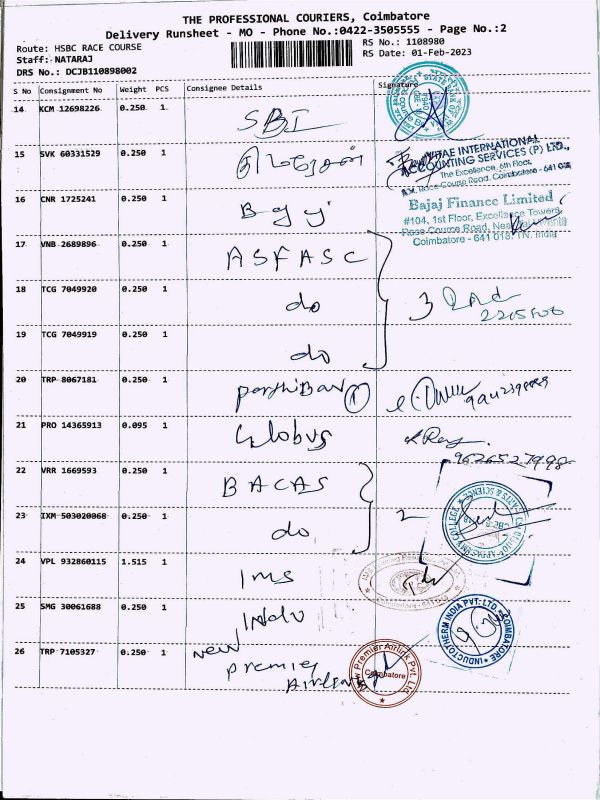 THE PROFESSIONAL COURIERS, Coimbatore
Delivery Runsheet - MO - Phone No.:0422-3505555 - Page No.:2
Route: HSBC RACE COURSE
RS No.: 1108980
Staff: NATARAJ
RS Date: 01-Feb-2023
DRS No.: DCJB110898002
S No Consignment No Weight PCS Consignee Details Signature
14 KCM 12698226 0.250 1 SBI
15 SVK 60331529 0.250 1
VITAE INTERNATIONAL
ACCOUNTING SERVICES (P) LTD.,
The Excellence, 6th Floor,
Race Course Road, Coimbatore - 641 018
16 CNR 1725241 0.250 1 Bajaj
Bajaj Finance Limited
#104, 1st Floor, Excellence Towers
Race Course Road, Near
Coimbatore - 641 018. TN. India
17 VNB 2689896 0.250 1 ASFASC
18 TCG 7049920 0.250 1 do 3
19 TCG 7049919 0.250 1 do
20 TRP 8067181 0.250 1 Parthiban 1
21 PRO 14365913 0.095 1 Globus
9626527998
22 VRR 1669593 0.250 1 BACAS
23 IXM 503020068 0.250 1 do 2
24 VPL 932860115 1.515 1 IMS
25 SMG 30061688 0.250 1 Indu
INDUCTOTHERM INDIA PVT. LTD. COIMBATORE
26 TRP 7105327 0.250 1 New
Premier
Airlink
New Premier Airlink Pvt. Ltd
Coimbatore